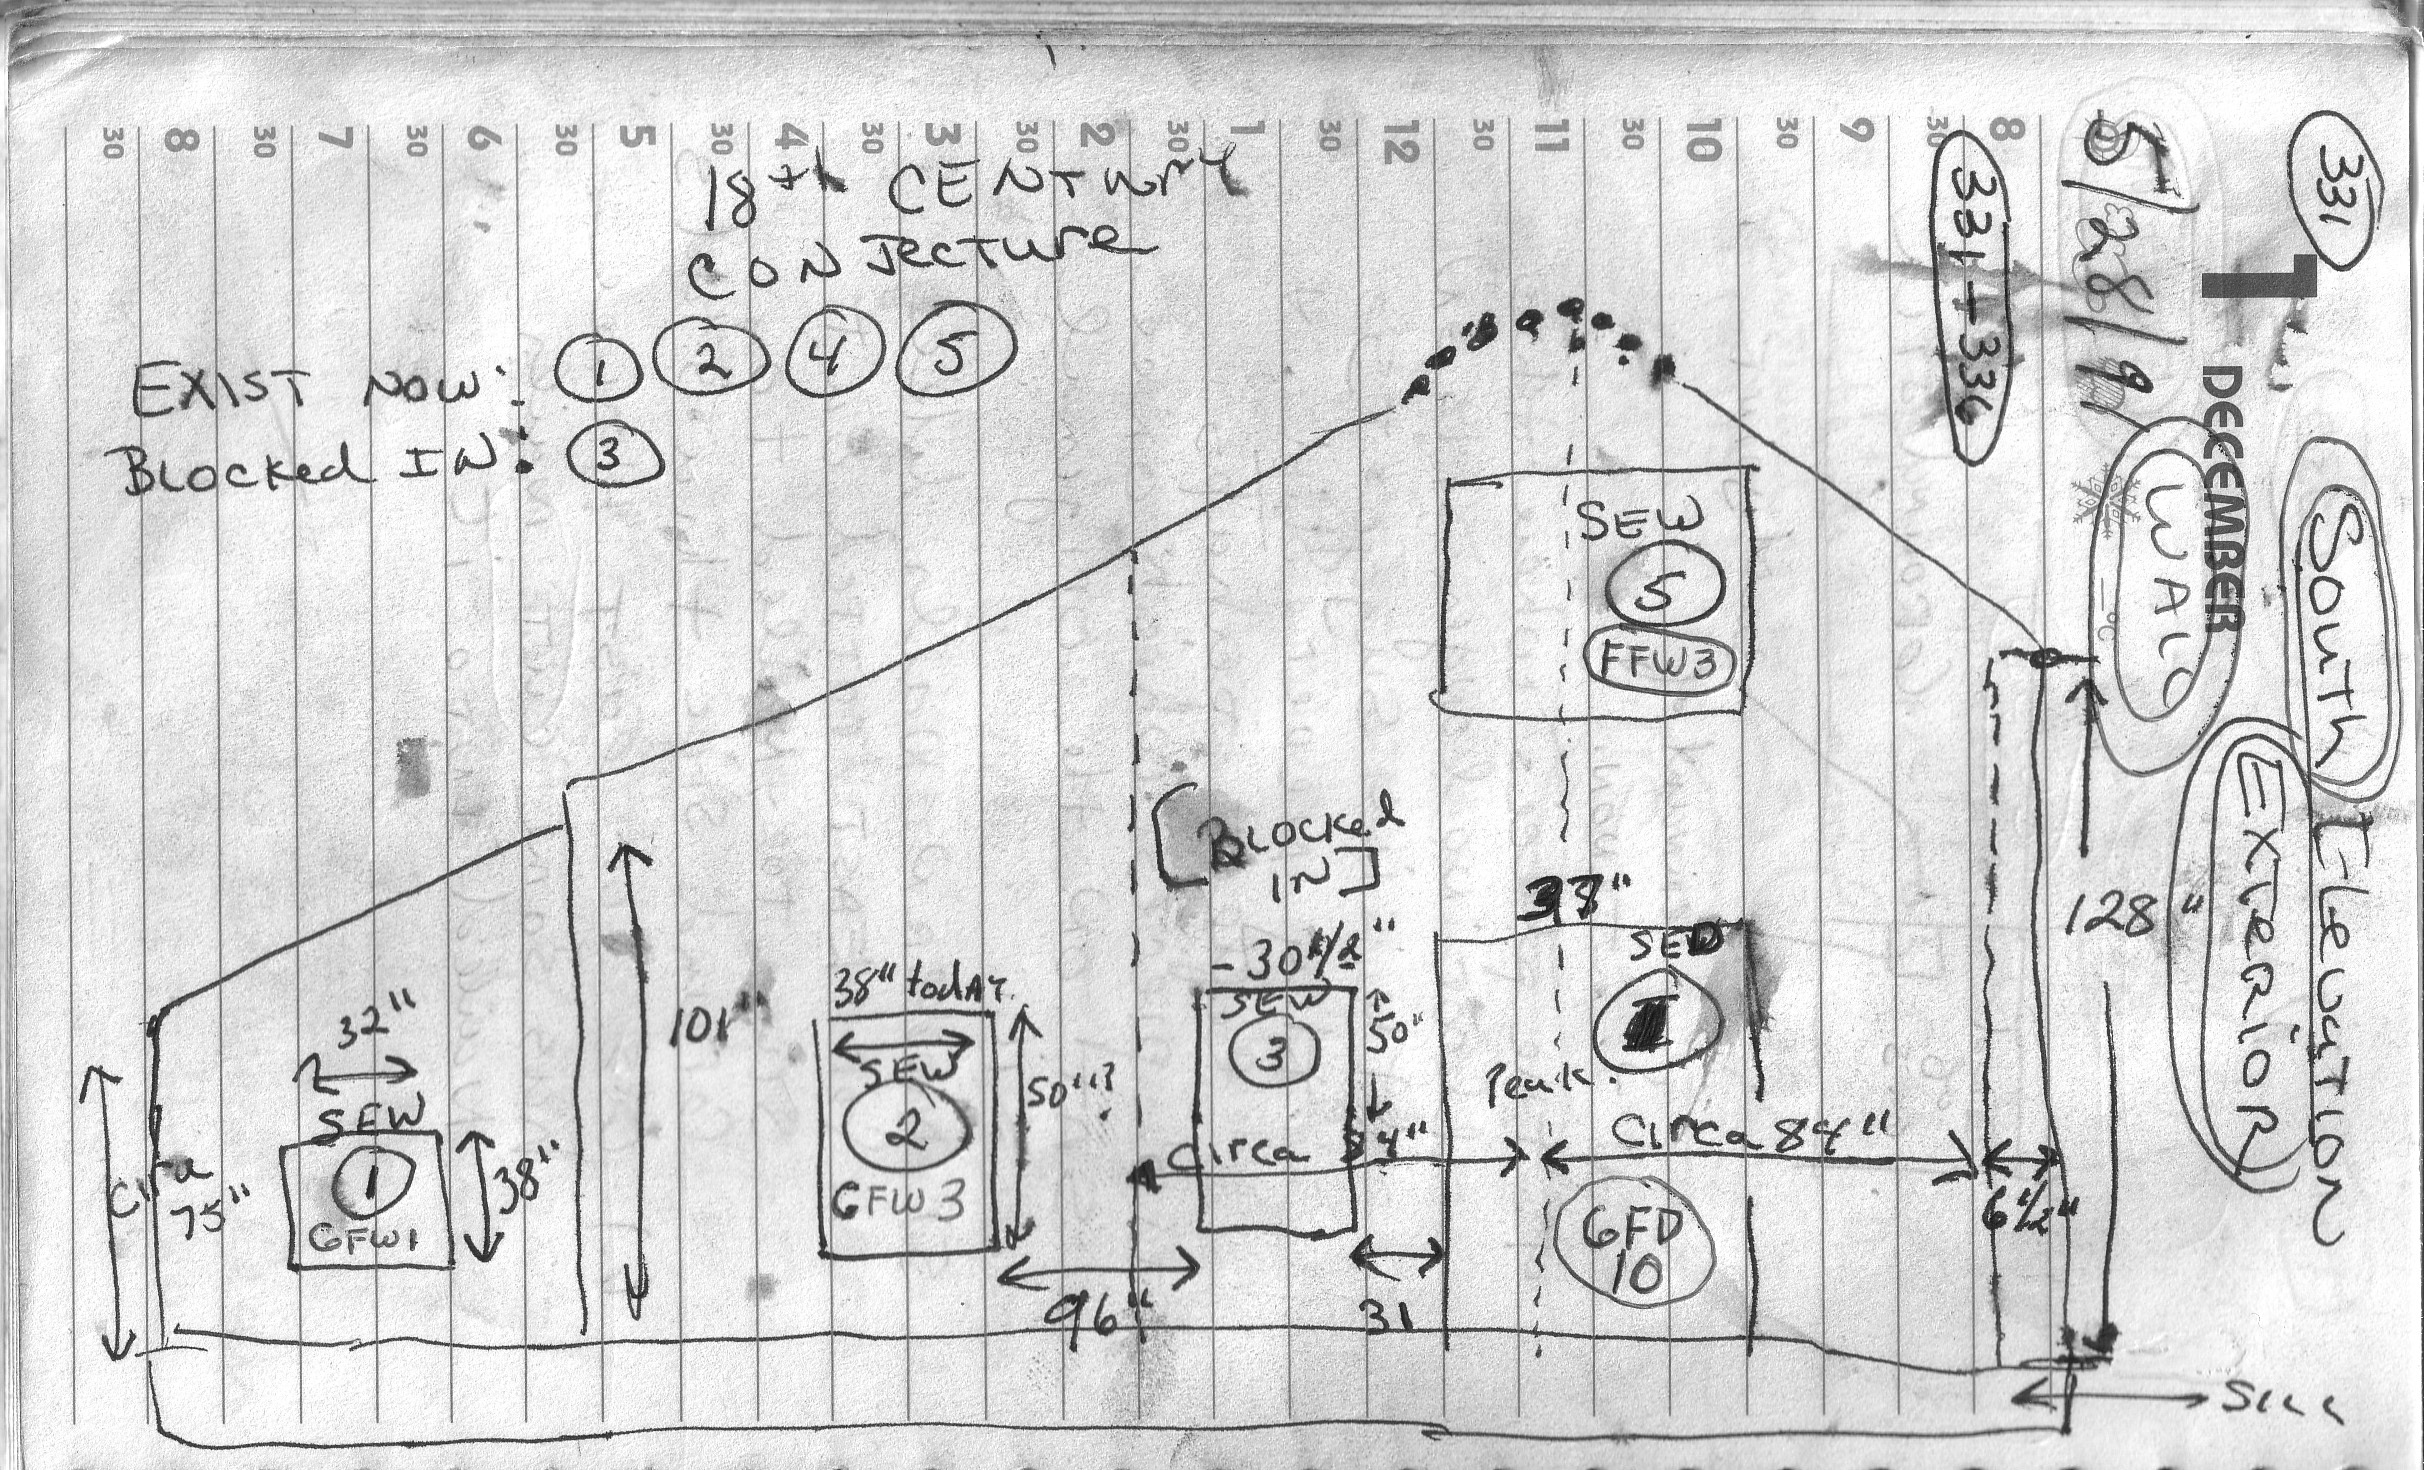 30 8 30 7 30 6 30 5 30 4 30 3 30 2 30 1 30 12 30 11 30 10 30 9 30 8
1
DECEMBER
-°C
331
5/28/91
331-336
WALL
SOUTH
ELEVATION
EXTERIOR
18th CENTURY
CONJECTURE
EXIST NOW: 1 2 4 5
BLOCKED IN: 3
SEW
5
FFW3
[BLOCKED
IN]
37"
SED
128"
101"
32"
SEW
1
GFW1
38"
Circa
75"
38" today.
SEW
2
GFW3
50"?
- 30 1/2"
SEW
3
50"
Peak.
Circa 84"
Circa 84"
6 1/2"
GFD
10
96"
31
Sill